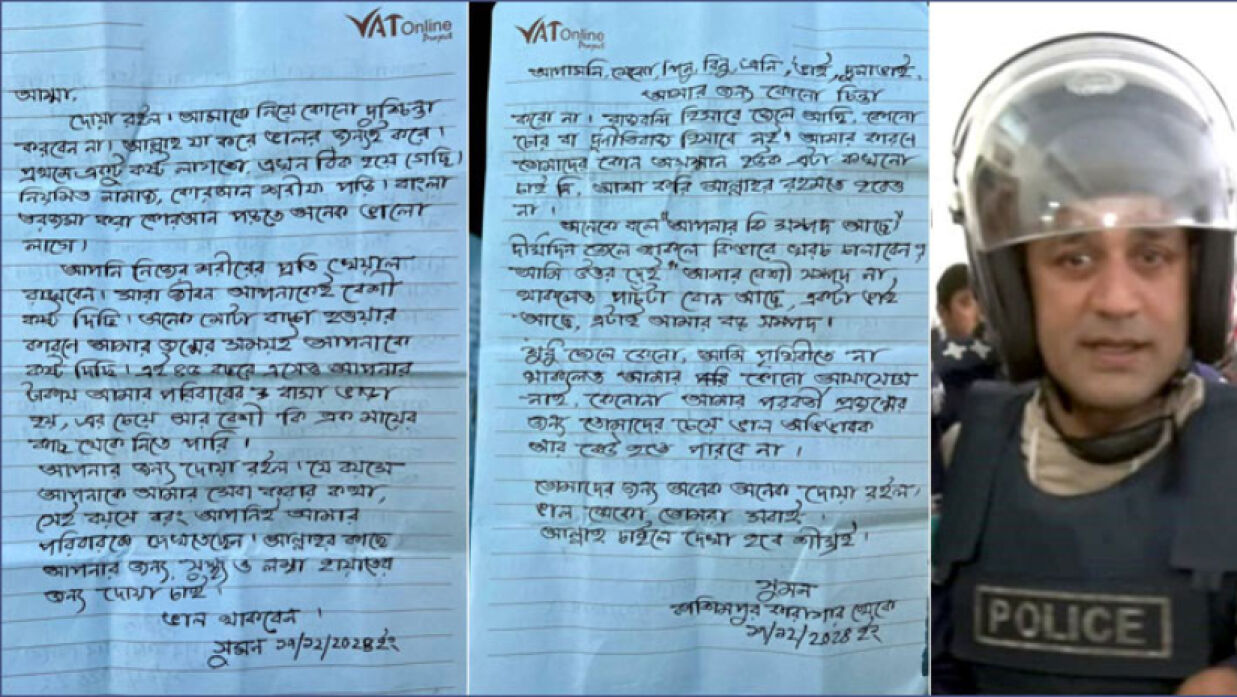 VAT Online
Project
আম্মা,
দোয়া রইল। আমাকে নিয়ে কোনো দুশ্চিন্তা
করবেন না। আল্লাহ যা করে ভালর জন্যই করে।
প্রথমে একটু কষ্ট লাগতো, এখন ঠিক হয়ে গেছি।
নিয়মিত নামাজ, কোরআন শরীফ পড়ি। বাংলা
তরজমা করা কোরআন পড়তে অনেক ভালো
লাগে।
আপনি নিজের শরীরের প্রতি খেয়াল
রাখবেন। সারা জীবন আপনাকেই বেশী
কষ্ট দিছি। অনেক মোটা বাচ্চা হওয়ার
কারনে আমার জন্মের সময়ই আপনাকে
কষ্ট দিছি। এই ৪৩ বছরে এসেও আপনার
টাকায় আমার পরিবারের বাসা ভাড়া
হয়, এর চেয়ে আর বেশী কি এক মায়ের
কাছ থেকে নিতে পারি।
আপনার জন্য দোয়া রইল। যে বয়সে
আপনাকে আমার সেবা করার কথা,
সেই বয়সে বরং আপনিই আমার
পরিবারকে দেখতেছেন। আল্লাহর কাছে
আপনার জন্য, সুস্থ্য ও লম্বা হায়াতের
জন্য দোয়া চাই।
ভাল থাকবেন।
সুমন ২৭/১২/2028 ইং
VAT Online
Project
আপামনি, মেঝো, শিলু, রিনু, এনি, ভাই, দুলাভাই,
আমার জন্য কোনো চিন্তা
করো না। রাজবন্দি হিসাবে জেলে আছি, কোনো
চোর বা দুর্নীতিবাজ হিসাবে নই। আমার কারনে
তোমাদের কোন অসম্মান হউক এটা কখনো
চাই নি, আশা করি আল্লাহর রহমতে হবেও
না।
অনেকে বলে "আপনার কি সম্পদ আছে"
দীর্ঘদিন জেলে থাকলে কিভাবে খরচ চালাবেন?
আমি উত্তর দেই "আমার বেশী সম্পদ না
থাকলেও পাচটা বোন আছে, একটা ভাই
আছে, এটাই আমার বড় সম্পদ।
শুধু জেলে কেনো, আমি পৃথিবীতে না
থাকলেও আমার কোনো আফসোস
নাই, কেনোনা আমার পরবর্তী প্রজন্মের
জন্য তোমাদের চেয়ে ভাল অভিভাবক
আর কেউ হতে পারবে না।
তোমাদের জন্য অনেক অনেক দোয়া রইল।
ভাল থেকো তোমরা সবাই।
আল্লাহ চাইলে দেখা হবে শীঘ্রই।
সুমন
কাশিমপুর কারাগার থেকে
২৭/১২/2028 ইং
POLICE